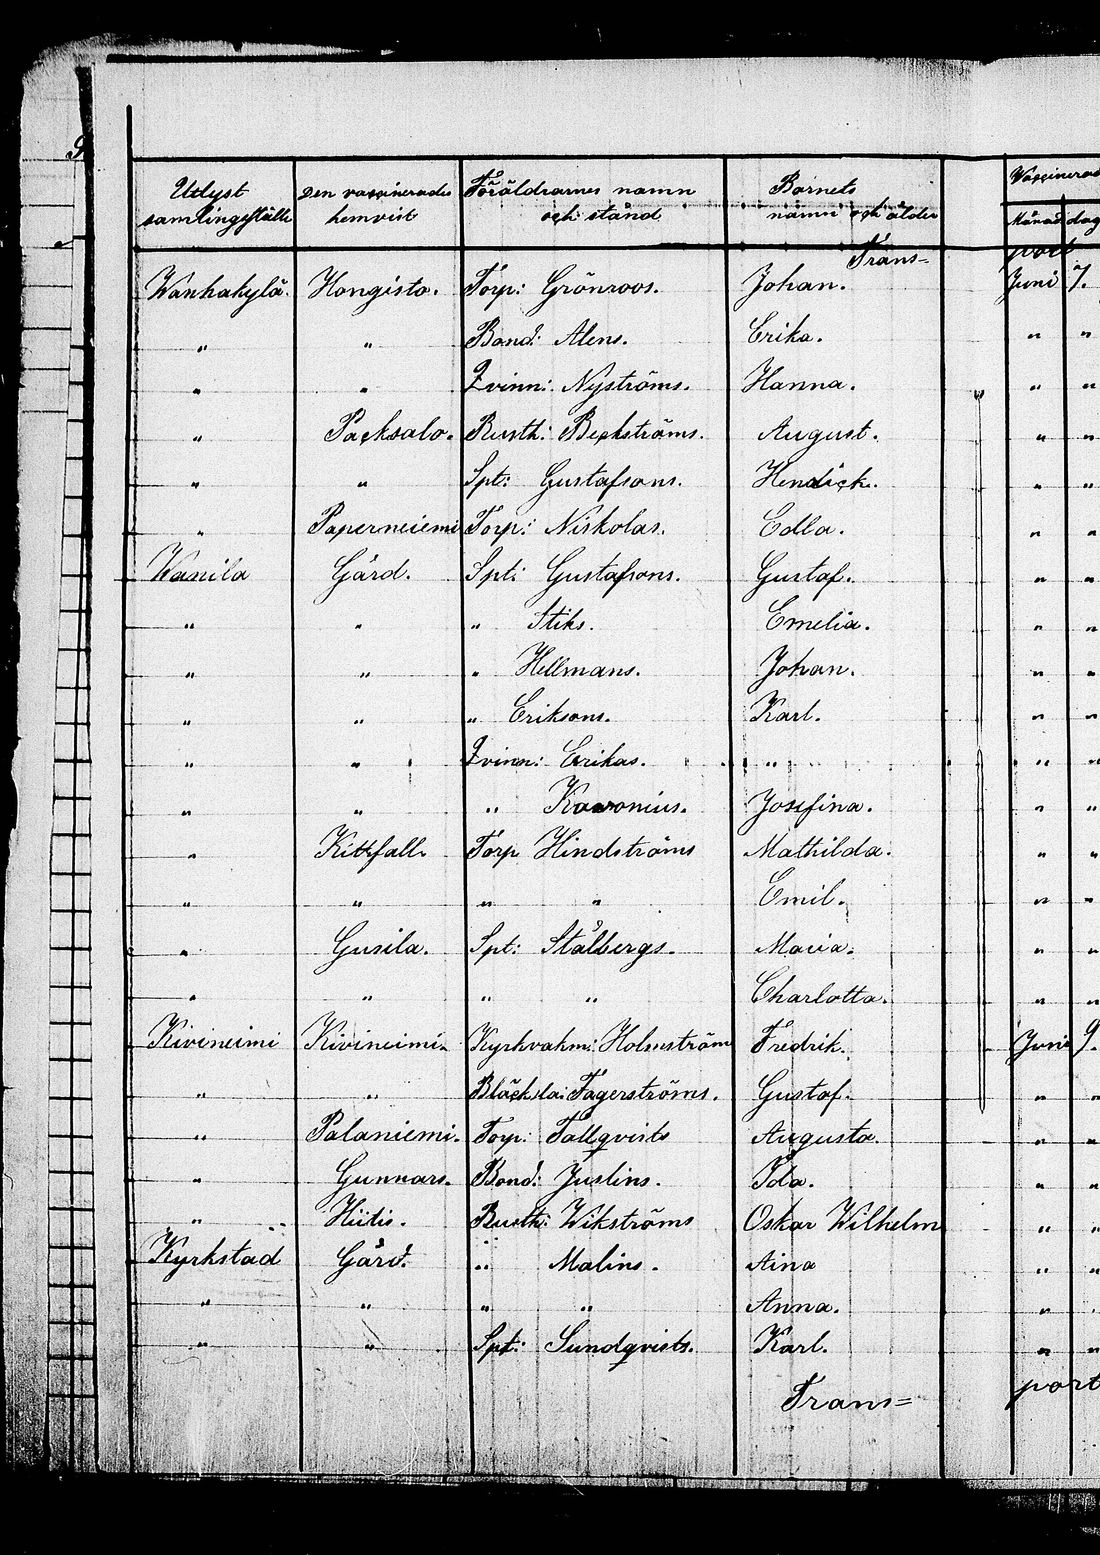 Utlyst samlingsställe Den vaccinerades hemvist Föräldrarnes namn och stånd Barnets namn och ålder Vaccinerad Månad dag
Trans= port
Wanhakylä. Hongisto. Torp: Grönroos. Johan. Juni 7.
" " Bond: Alens. Erika. " "
" " Qvinn: Nyströms. Hanna. " "
" Packsalo. Rusth: Beckströms. August. " "
" " Spt: Gustafsons. Hendick. " "
" Paperneiemi Torp: Niskolas. Edla. " "
Wanila Gård. Spt: Gustafsons. Gustaf. " "
" " " Stiks. Emelia. " "
" " " Hellmans. Johan. " "
" " " Eriksons. Karl. " "
" " Qvinn: Erikas. " " "
" " " Kavonius. Josefina. " "
" Kittfall. Torp Hindströms Mathilda. " "
" " " " Emil. " "
" Gusila. Spt: Stålbergs. Maria. " "
" " " " Charlotta. " "
Kivineimi Kivineimi. Kyrkvahm: Holmström Fredrik. Juni 9.
" " Bläcksla: Fagerströms. Gustaf. " "
" Palaniemi. Torp: Tallqvists Augusta. " "
" Gunnars. Bond: Juslins. Ida. " "
" Hiitis. Rusth: Wikströms Oskar Wilhelm " "
Kyrkstad Gård. " Malins. Aina " "
" " " " Anna. " "
" " Spt: Sundqvists. Karl. " "
Trans= port